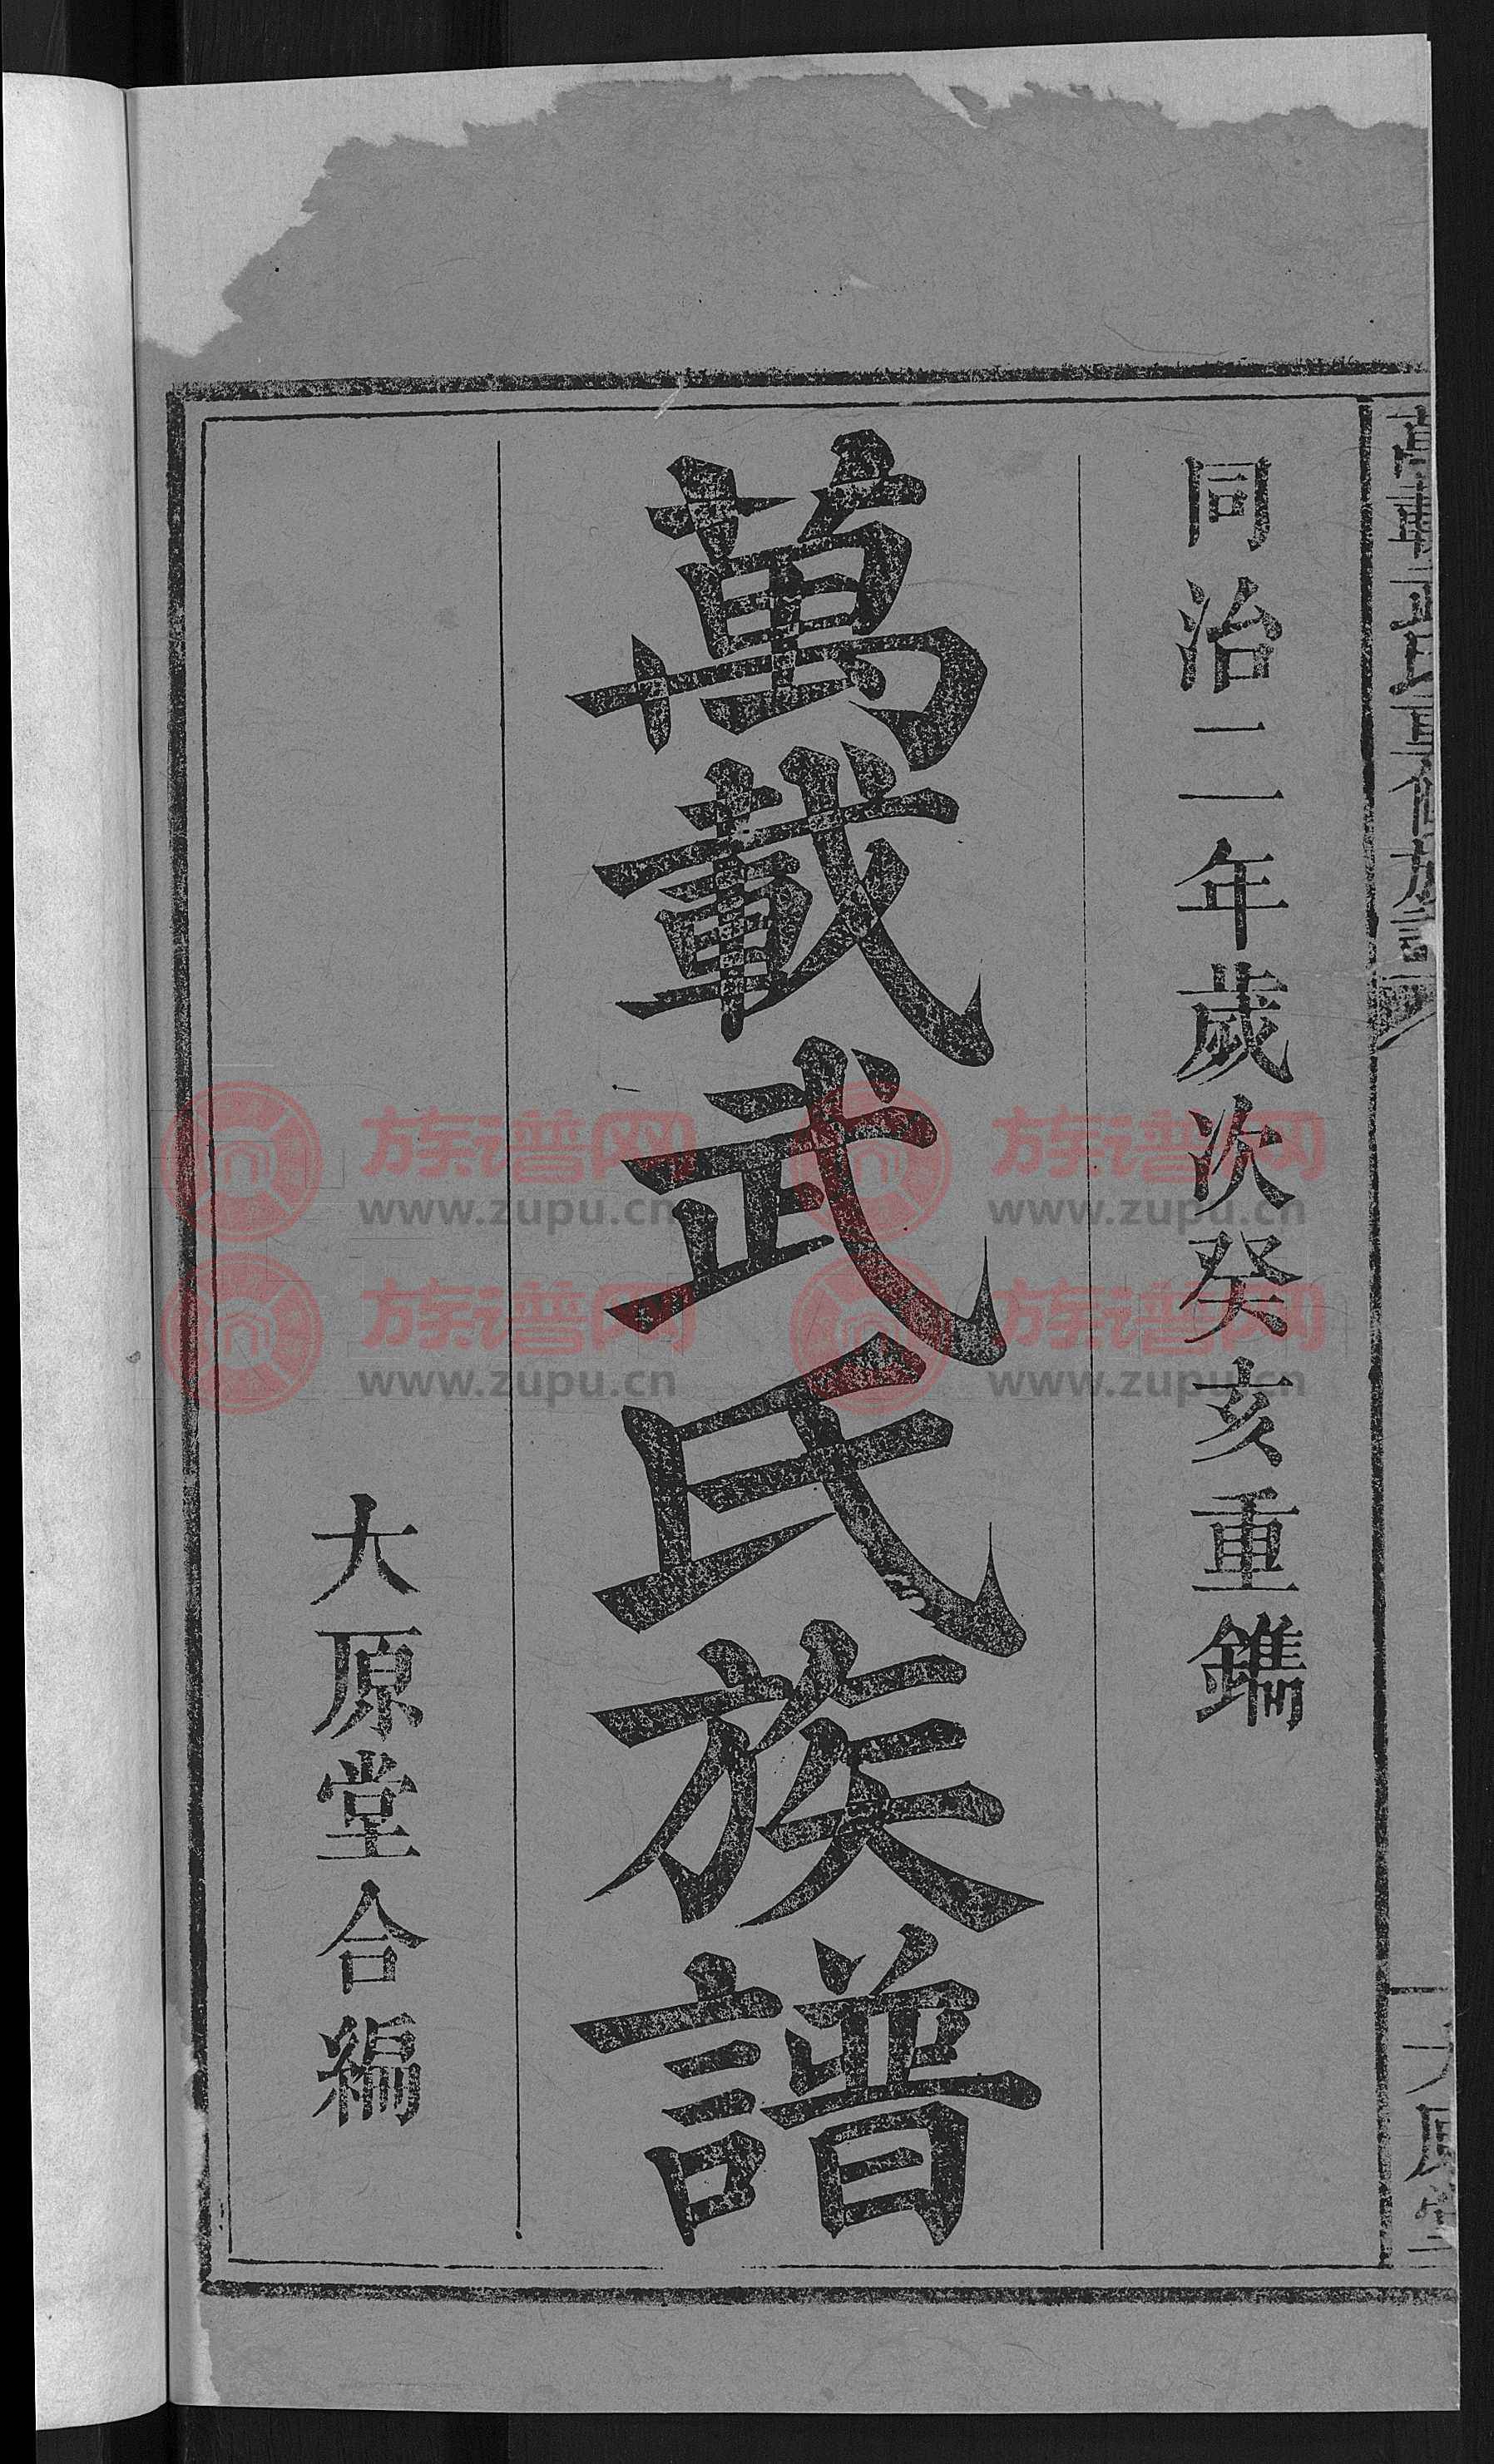 同治二年歲次癸亥重鐫
萬載武氏族譜
大原堂合編
族谱网
www.zupu.cn
族谱网
www.zupu.cn
族谱网
www.zupu.cn
族谱网
www.zupu.cn